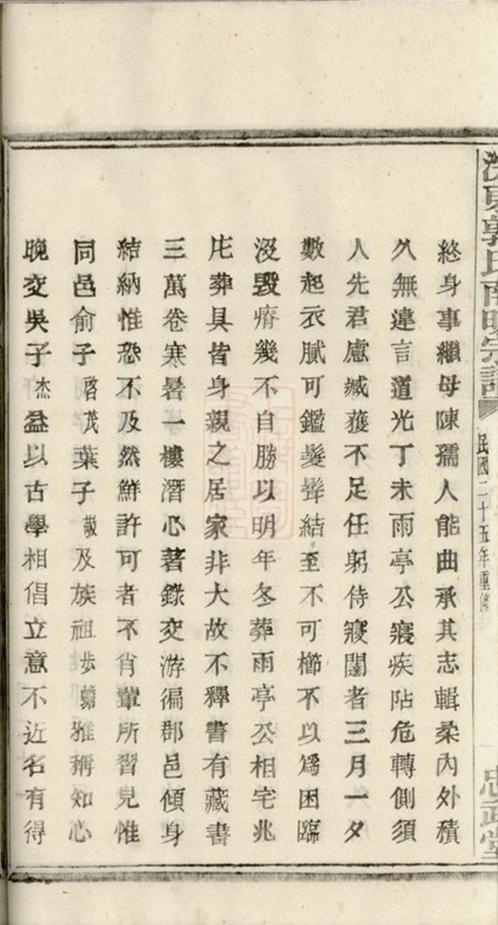 終身事繼母陳孺人能曲承其志輯柔內外積
久無違言道光丁未雨亭公寢疾阽危轉側須
人先君慮臧獲不足任躬侍寢闥者三月一夕
數起衣膩可鑑髮髼結至不可櫛不以爲困臨
沒毀瘠幾不自勝以明年冬葬雨亭公相宅兆
庀葬具皆身親之居家非大故不釋書有藏書
三萬卷寒暑一樓潛心著錄交游徧郡邑傾身
結納惟恐不及然鮮許可者不肖輩所習見惟
同邑俞子啓茂葉子及族祖步雅稱知心
晚交吳子杰益以古學相倡立意不近名有得
東郭氏南明宗譜
民國二十五年重修
忠武堂